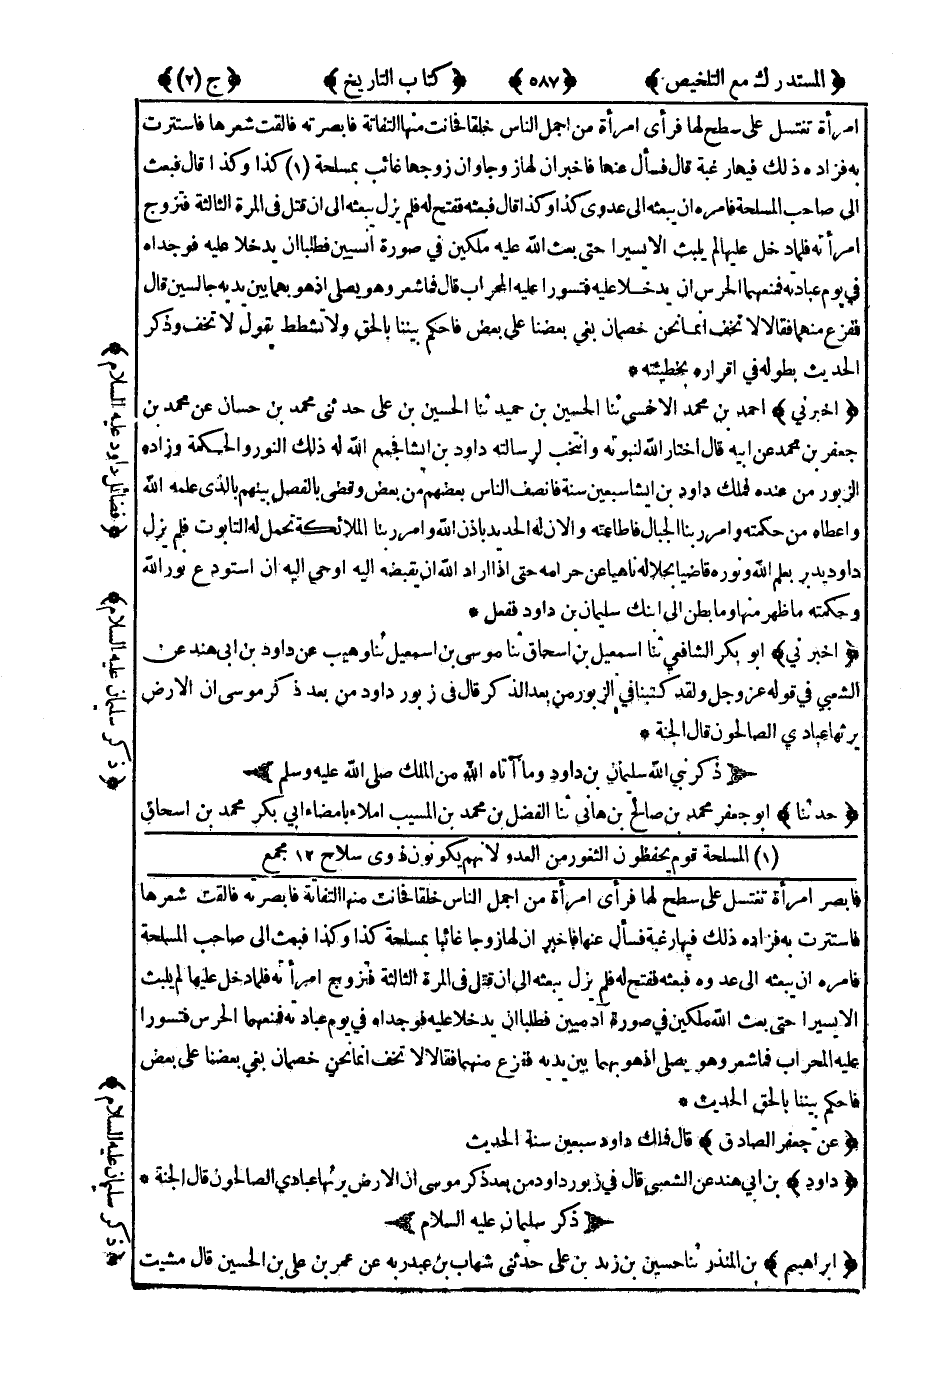 ﴿ المستدرك مع التلخيص ﴾ ﴿ ٥٨٧ ﴾ ﴿ كتاب التاريخ ﴾ ﴿ ج (٢) ﴾
امرأة تغتسل على سطح لها فرأى امرأة من اجمل الناس خلقا فحانت منها التفاتة فابصرته فالقت شعرها فاستترت
به فزاده ذلك فيها رغبة قال فسأل عنها فاخبر ان لها زوجا وان زوجها غائب بمسلحة (١) كذا وكذا قال فبعث
الى صاحب المسلحة فامره ان يبعثه الى عدوى كذا وكذا قال فبعثه ففتح له فلم يزل يبعثه الى ان قتل فى المرة الثالثة فتزوج
امرأته فلما دخل عليها لم يلبث الا يسيرا حتى بعث الله عليه ملكين في صورة أنسيين فطلبا ان يدخلا عليه فوجداه
في يوم عبادته فمنعهما الحرس ان يدخلا عليه فتسورا عليه المحراب قال فما شعر وهو يصلى اذ هو بهما بين يديه جالسين قال
ففزع منهما فقالا لا تخف انما نحن خصمان بغي بعضنا على بعض فاحكم بيننا بالحق ولا تشطط يقول لا تخف وذكر
الحديث بطوله في اقراره بخطيئته *
﴿ اخبرني ﴾ احمد بن محمد الاخمسي ثنا الحسين بن حميد ثنا الحسين بن على حدثنى محمد بن حسان عن محمد بن
جعفر بن محمد عن ابيه قال اختار الله لنبوته وانتخب لرسالته داود بن ايشا فجمع الله له ذلك النور والحكمة وزاده
الزبور من عنده فملك داود بن ايشا سبعين سنة فانصف الناس بعضهم من بعض وقضى بالفصل بينهم بالذى علمه الله
واعطاه من حكمته وامر ربنا الجبال فاطاعته والان له الحديد باذن الله وامر ربنا الملائكة تحمل له التابوت فلم يزل
داود يدبر بعلم الله ونوره قاضيا بحلاله ناهيا عن حرامه حتى اذا اراد الله ان يقبضه اليه اوحي اليه ان استودع نور الله
وحكمته ما ظهر منها وما بطن الى ابنك سليمان بن داود ففعل *
﴿ اخبرني ﴾ ابو بكر الشافعي ثنا اسمعيل بن اسحاق ثنا موسى بن اسمعيل ثنا وهيب عن داود بن ابى هند عن
الشعبي في قوله عز وجل ولقد كتبنا في الزبور من بعد الذكر قال فى زبور داود من بعد ذكر موسى ان الارض
يرثها عبادي الصالحون قال الجنة *
ذكر نبي الله سليمان بن داود وما آتاه الله من الملك صلى الله عليه وسلم
﴿ حدثنا ﴾ ابو جعفر محمد بن صالح بن هانى ثنا الفضل بن محمد بن المسيب املاء بامضاء ابي بكر محمد بن اسحاق
(١) المسلحة قوم يحفظون الثغور من العدو لانهم يكونون ذوى سلاح ١٢ مجمع
فابصر امرأة تغتسل على سطح لها فرأى امرأة من اجمل الناس خلقا فحانت منها التفاتة فابصرته فالقت شعرها
فاستترت به فزاده ذلك فيها رغبة فسأل عنها فاخبر ان لها زوجا غائبا بمسلحة كذا وكذا فبعث الى صاحب المسلحة
فامره ان يبعثه الى عدوه فبعثه ففتح له فلم يزل يبعثه الى ان قتل فى المرة الثالثة فتزوج امرأته فلما دخل عليها لم يلبث
الا يسيرا حتى بعث الله ملكين في صورة آدميين فطلبا ان يدخلا عليه فوجداه في يوم عبادته فمنعهما الحرس فتسورا
عليه المحراب فما شعر وهو يصلى اذ هو بهما بين يديه ففزع منهما فقالا لا تخف انما نحن خصمان بغي بعضنا على بعض
فاحكم بيننا بالحق الحديث *
﴿ عن جعفر الصادق ﴾ قال فملك داود سبعين سنة الحديث
﴿ داود ﴾ بن ابي هند عن الشعبي قال في زبور داود من بعد ذكر موسى ان الارض يرثها عبادي الصالحون قال الجنة *
ذكر سليمان عليه السلام
﴿ ابراهيم ﴾ بن المنذر ثنا حسين بن زيد بن على حدثنى شهاب بن عبد ربه عن عمر بن على بن الحسين قال مشيت
﴿ فضائل داود عليه السلام ﴾
﴿ ذكر سليمان عليه السلام ﴾
﴿ ذكر سليمان عليه السلام ﴾